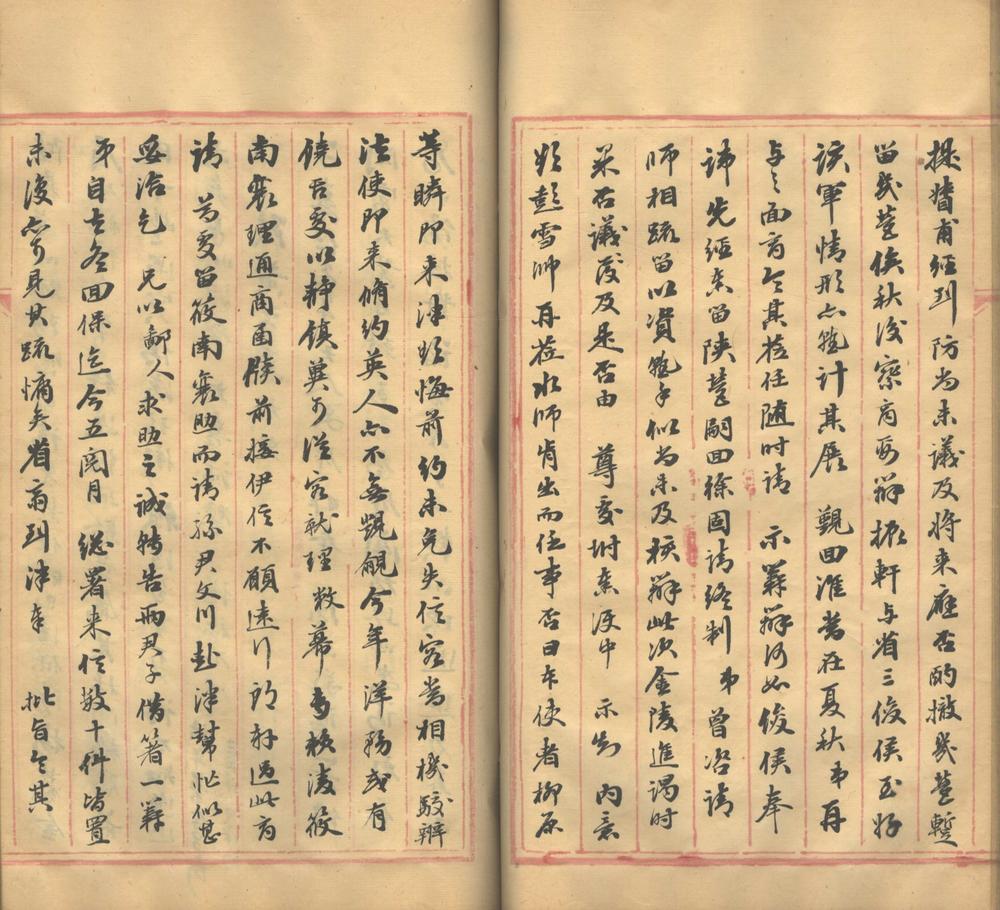 操嬸甫經到防尚未議及將來應否酌撤幾營暫
留幾營俟秋後察商妥辦振軒与省三俊侯至好
該軍情形亦能計其展 覲回淮當在夏秋弟再
与之面商令其蒞任隨時請 示籌辦河如俊侯奉
諱先經奏留陝營嗣回徐固請終制 弟曾咨請
師相疏留以資熟手似尚未及核辦此次金陵進謁時
果否議及是否由 尊處附奏便中 示知 內意
頗彭雪帥再蒞水師肯出而任事否日本使者柳原
等瞬即來津頗悔前約未免失信容當相機駁辨
法使即來脩約英人亦不無覬覦今年洋務或有
饒舌處以靜鎮冀可從容就理敝幕專賴凌筱
南襄理通商函牘前接伊信不願遠行 節府過此有
請 尊處留筱南襄助而請孫君文川赴津幫忙似皆
妥洽乞 兄以鄙人求助之誠轉告兩君子借箸一籌
弟自去冬回保迄今五閱月 總署來信數十件皆置
未復亦可見其疏慵矣省翁到津奉 批旨令其